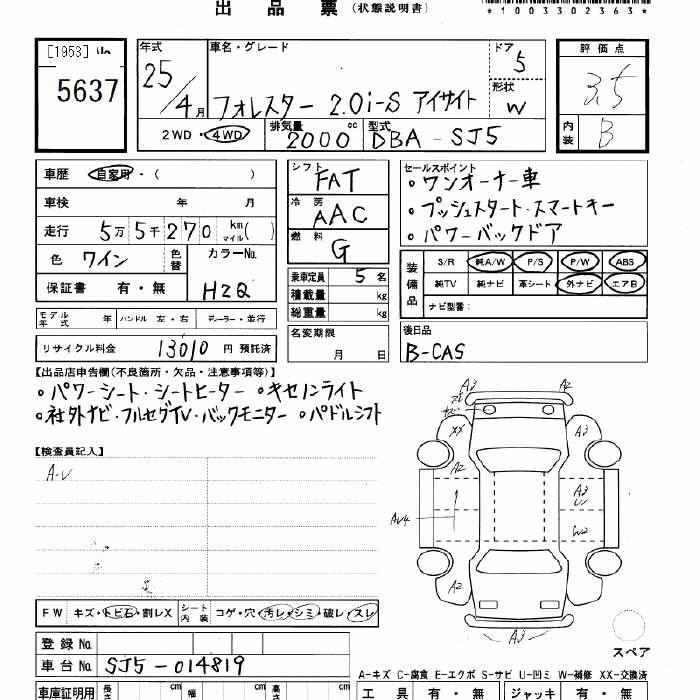 出品票 (状態説明書)
*1003302363*
[1953]
5637
年式 車名・グレード ドア 5 評価点
25/4月 フォレスター 2.0i-S アイサイト 形状 W 3.5
2WD・4WD 排気量 2000 cc 型式 DBA-SJ5 内装 B
車歴 自家用・( ) シフト FAT セールスポイント
。ワンオーナー車
車検 年 月 冷房 AAC 。プッシュスタート・スマートキー
走行 5万5千270 km マイル( ) 燃料 G 。パワーバックドア
色 ワイン 色替 カラーNo. H2Q 乗車定員 5名
装備品 S/R 純A/W P/S P/W ABS
保証書 有・無 積載量 kg 純TV 純ナビ 革シート 外ナビ エアB
総重量 kg ナビ型番:
モデル年式 年 ハンドル 左・右 ディーラー・並行 名変期限 月 日 後日品
リサイクル料金 13010円 預託済 B-CAS
【出品店申告欄(不良箇所・欠品・注意事項等)】
。パワーシート・シートヒーター 。キセノンライト
。社外ナビ・フルセグTV・バックモニター 。パドルシフト
【検査員記入】
A・U
A3 A2
XX A3
A2 A3
AU4 W2
A2
A3
FW キズ・トビ石・割レX シート内装 コゲ・穴・汚レ・シミ・破レ・スレ
スペア
登録No.
車台No. SJ5-014819
A-キズ C-腐食 E-エクボ S-サビ U-凹ミ W-補修 XX-交換済
車庫証明用 長さ cm 幅 cm 高さ cm 工具 有・無 ジャッキ 有・無